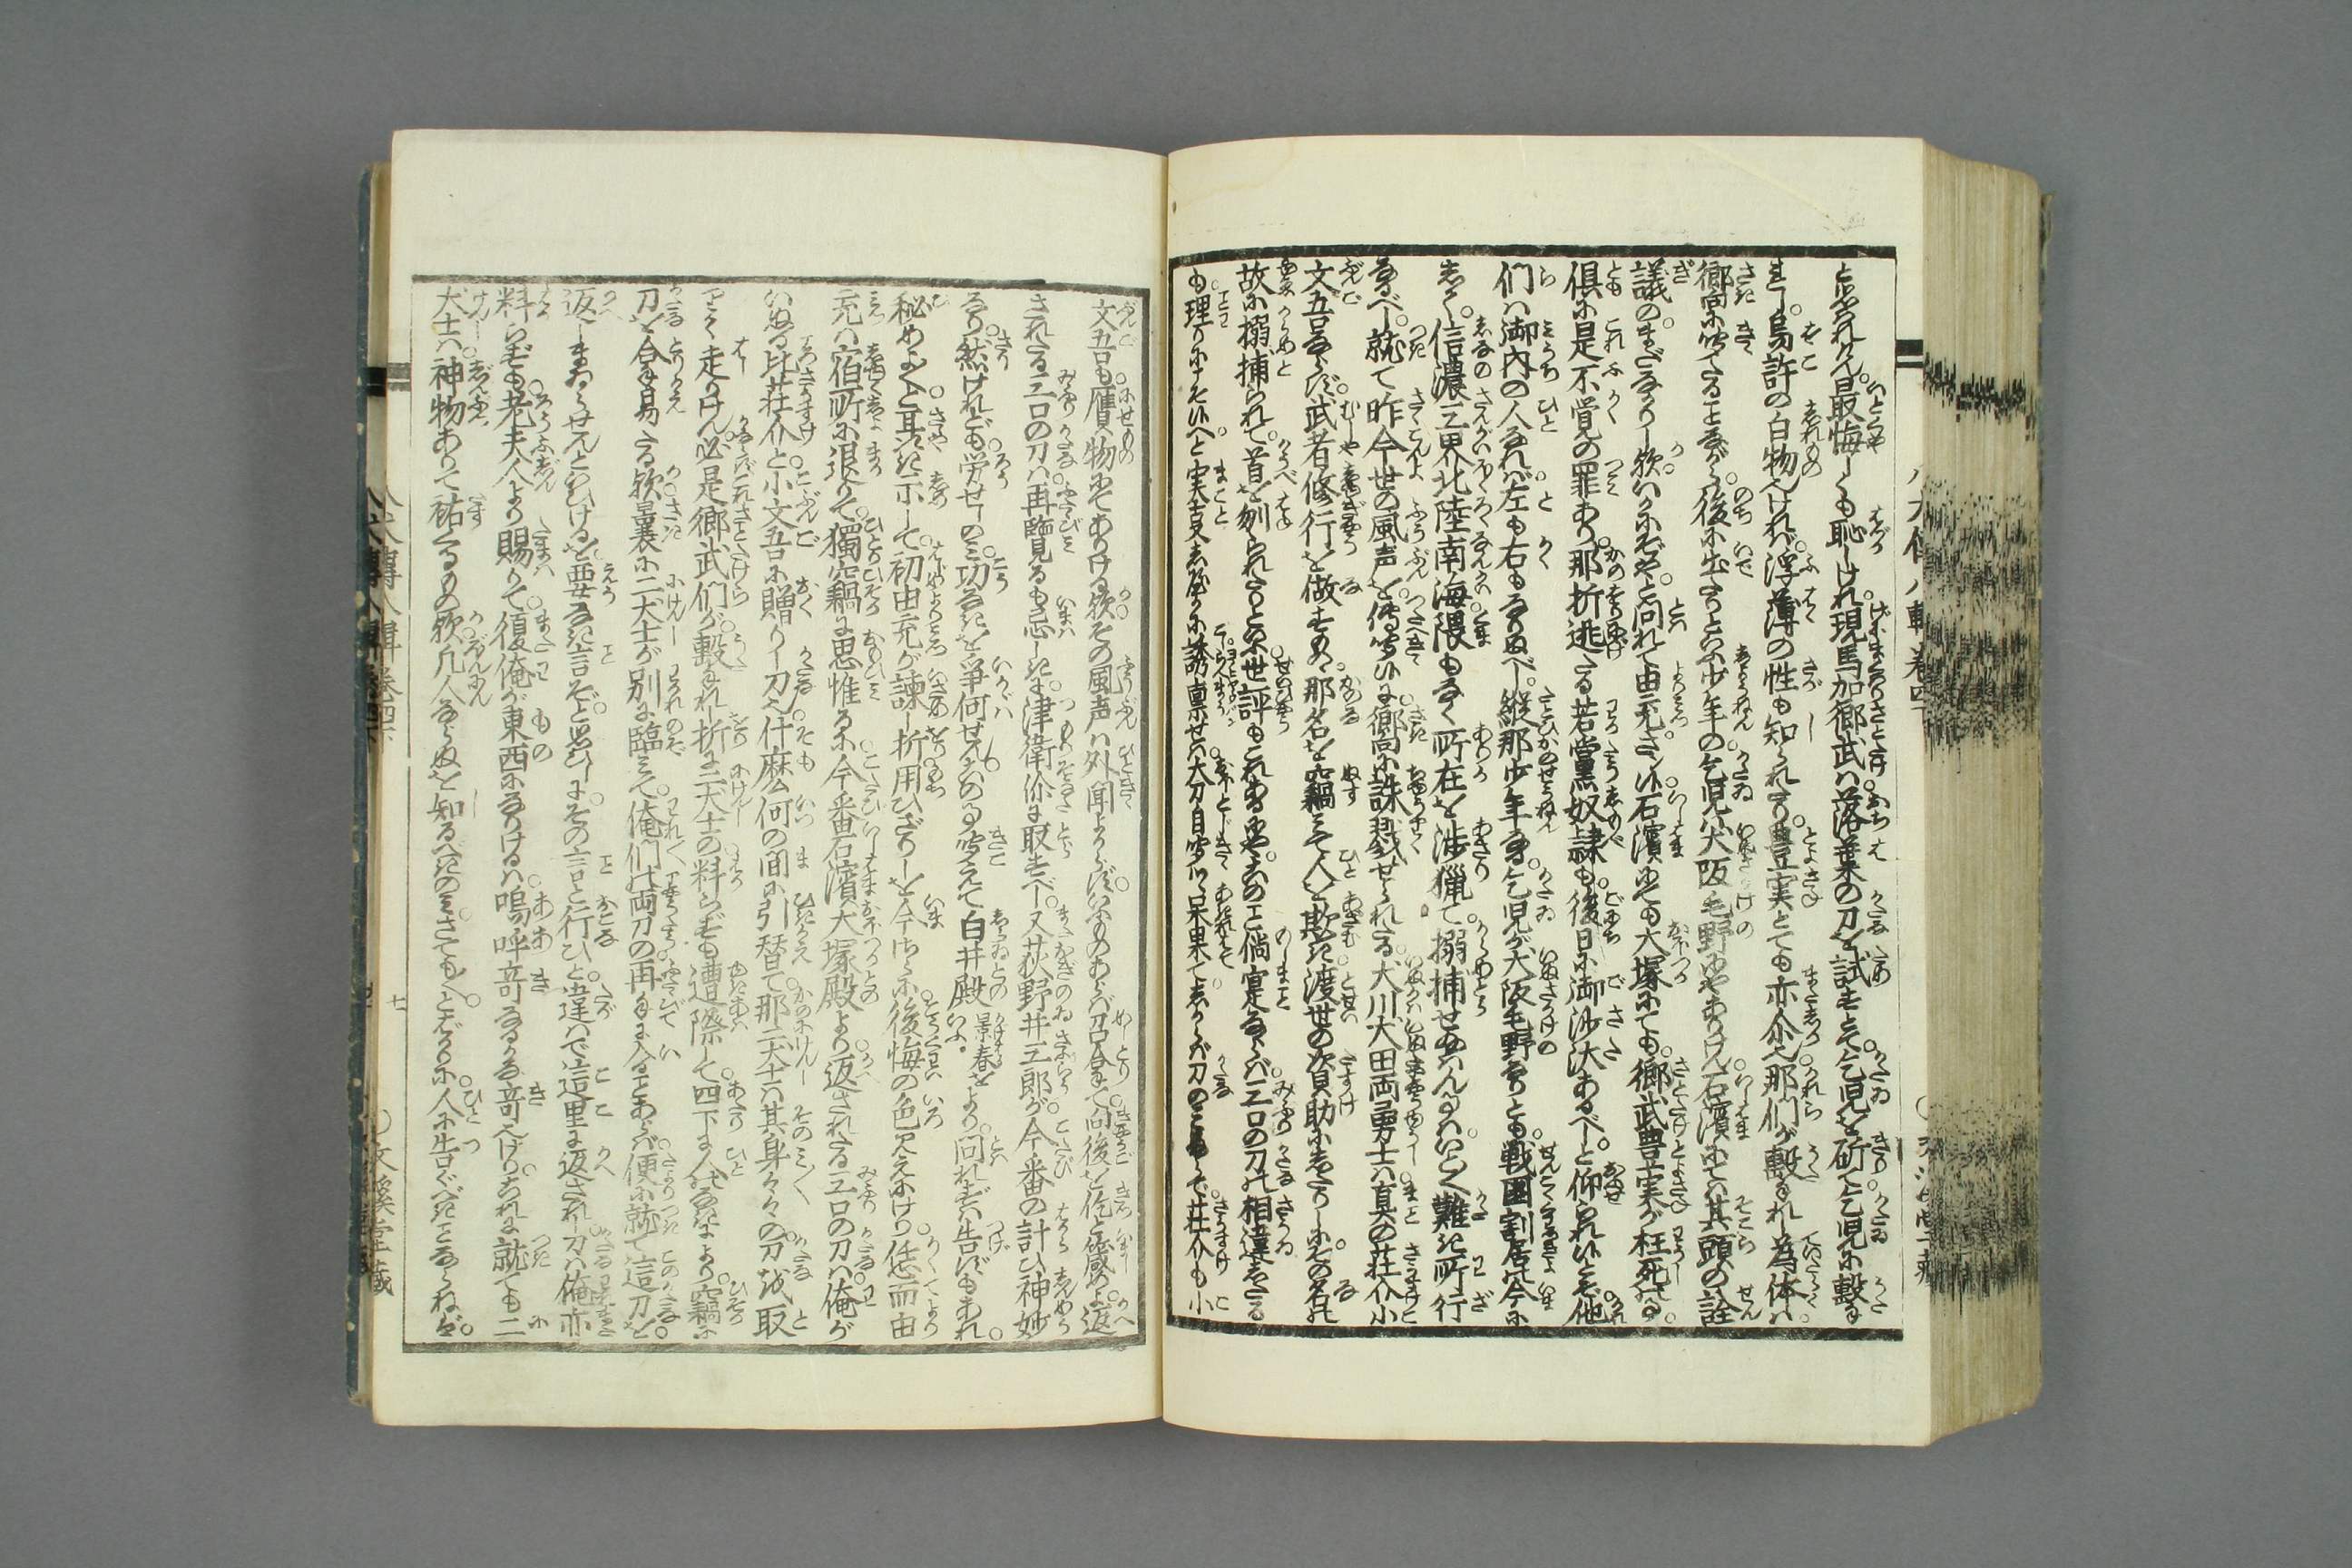 と思れん。最悔しくも恥しけれ。現馬加郷武は。落葉の刀を試さんとて。乞児を斫て乞児に撃
まし。烏許の白物なれば。浮薄の性も知られたり。豊実とても亦介也。那們が撃れし為体は。
郷向に聞てたる事ながら。後に出たりといふ少年の乞児は。犬阪毛野にやありけん。石濱にては其頭の詮
議の。まだなかりし欤いかにぞや。と問れて由充。さン候。石濱にても大塚にても。郷武豊実が枉死せる。
倶に是不覚の罪あり。那折逃たる若黨奴隷も。後日に御沙汰あるべし。と仰られ候とぞ。他
们は御内の人なれば。左も右もなりぬべし。縦那少年なる。乞児が犬阪毛野なりとも。戦国割居の今に
しく。信濃三界北陸南海。隈もなく所在を渉獵て。搦捕せ給はんるは。いといと難き所行
なるべし。就て昨今世の風声を。傳聞候に。郷向に誅戮せられたる。犬川犬田両勇士は。真の荘介小
文吾ならず。武者修行を做すもの。那名を竊みて人を欺き。渡世の資助にしたりしに。その名の
故に搦捕られて。首を刎られたりとの世評もこれあるにや。この事倘寔ならば。三口の刀の相違したる
も理りに侍りと。実事しやかに誘稟せば。大刀自聞つつ呆果て。しからば刀のことのみで。荘介も小
文吾も。贋物にてありける欤。その風声は外聞よからず。いふものあらば召合て。向後を佗と箴めよ。返
されたる三口の刀は。再覧るも忌しきに。津衛弥に取すべし。又荻野井三郎が。今番の計ひ神妙
なり。然けれども労せしのみ。功なきを争何せん。この事聞えて白井殿景春をいふ。より。問れずは告ずもあれ。
秘めよ。と耳語き示して。初由充が諫し折。用ひざりしを今さらに。後悔の色見えにけり。恁而由
充は宿所に退りて。獨竊に思惟るに。今番石濱大塚殿より。返されたる三口の刀は。俺が
いぬる比荘介と。小文吾に贈りし刀也。什麼何の間に引替て。那二犬士は其身々々の。刀は取
りまく走りけん。必是郷武们が。撃れし折に二犬士の。料らずも遭際して。四下に人のなきより。竊に
刀を合とり易たる欤。曩に二犬士が別に臨みて。俺们の両刀の。再手に入る事あらば。便に就て這刀を。
返しまゐらせんといひけるを。要なき言ぞと思ひしに。その言と行ひと。違はで這里に返されし。刀は俺亦
料らずも。老夫人より賜りて。復俺が東西になりけるは。嗚呼奇なるかも奇也けり。これに就ても二
犬士は。神物ありて祐くるもの欤。凡人ならぬを知るべきのみ。さてもさても。とばかりに。人に告ぐべき事ならねば。
八犬傳八輯巻四下
七
〇文溪堂藏